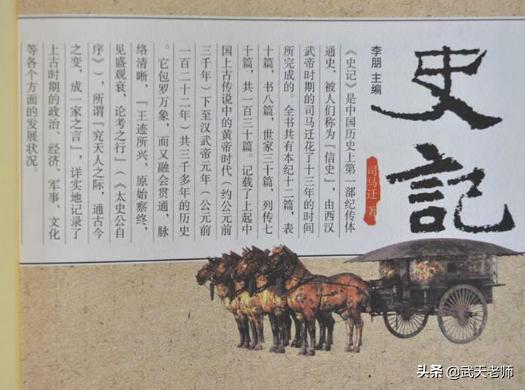 史記
司马迁 著
李朋 主编
《史记》是中国历史上第一部纪传体
通史，被人们称为「信史」，由西汉
武帝时期的司马迁花了十三年的时间
所完成的。全书共有本纪十二篇，表
十篇，书八篇，世家三十篇，列传七
十篇，共一百三十篇。记载了上起中
国上古传说中的黄帝时代（约公元前
三千年）下至汉武帝元年（公元前
一百二十二年）共三千多年的历史
。它包罗万象，而又融会贯通，脉
络清晰，「王迹所兴，原始察终，
见盛观衰，论考之行」（《太史公自
序》），所谓「究天人之际，通古今
之变，成一家之言」，详实地记录了
上古时期的政治、经济、军事、文化
等各个方面的发展状况。
头条 @武天老师